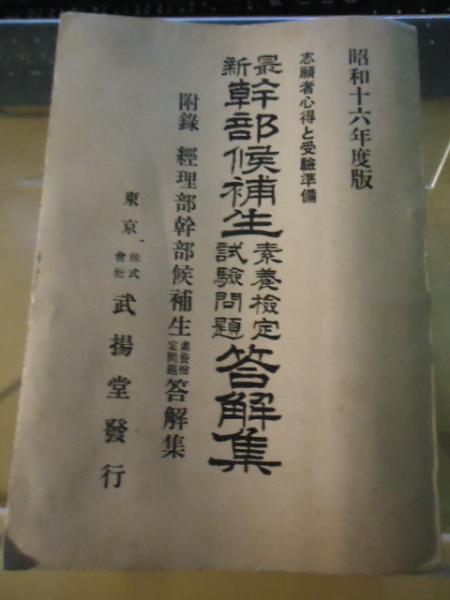 昭和十六年度版
志願者心得と受驗準備
最新幹部候補生素養檢定試驗問題答解集
附錄 經理部幹部候補生素養檢定問題答解集
東京 株式會社 武揚堂發行